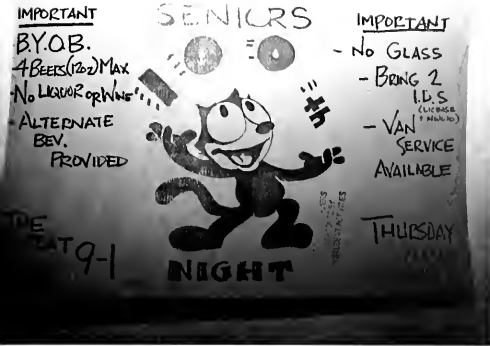 SENIORS
IMPORTANT
B.Y.O.B.
4 BEERS (12oz) MAX
- NO LIQUOR OR WINE
- ALTERNATE
BEV.
PROVIDED
THE
9-1
NIGHT
IMPORTANT
- NO GLASS
- BRING 2
I.D.S
(LICENSE
- VAN
SERVICE
AVAILABLE
THURSDAY